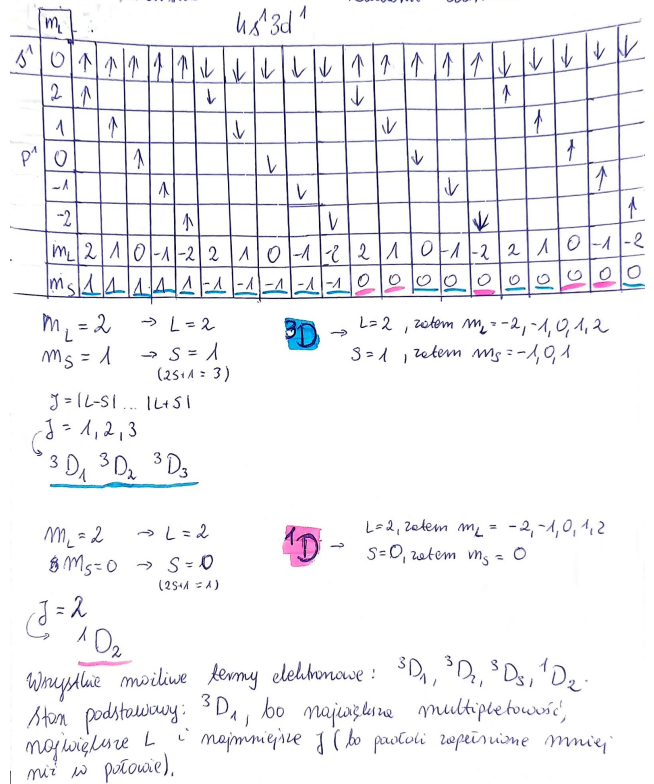 4s¹3d¹
mL
s¹ 0 ↑ ↑ ↑ ↑ ↑ ↓ ↓ ↓ ↓ ↓ ↑ ↑ ↑ ↑ ↑ ↓ ↓ ↓ ↓ ↓
2 ↑ ↓ ↓ ↑
1 ↑ ↓ ↓ ↑
p¹ 0 ↑ ↓ ↓ ↑
-1 ↑ ↓ ↓ ↑
-2 ↑ ↓ ↓ ↑
mL 2 1 0 -1 -2 2 1 0 -1 -2 2 1 0 -1 -2 2 1 0 -1 -2
mS 1 1 1 1 1 -1 -1 -1 -1 -1 0 0 0 0 0 0 0 0 0 0
mL = 2 → L = 2 ³D → L=2, zatem mL = -2, -1, 0, 1, 2
mS = 1 → S = 1 S=1, zatem mS = -1, 0, 1
(2S+1 = 3)
J = |L-S| ... |L+S|
J = 1, 2, 3
³D₁ ³D₂ ³D₃
mL = 2 → L = 2 ¹D → L=2, zatem mL = -2, -1, 0, 1, 2
mS = 0 → S = 0 S=0, zatem mS = 0
(2S+1 = 1)
J = 2
¹D₂
Wszystkie możliwe termy elektronowe: ³D₁, ³D₂, ³D₃, ¹D₂.
Stan podstawowy: ³D₁, bo największa multipletowość,
największe L i najmniejsze J (bo zapełnione mniej
niż w połowie).